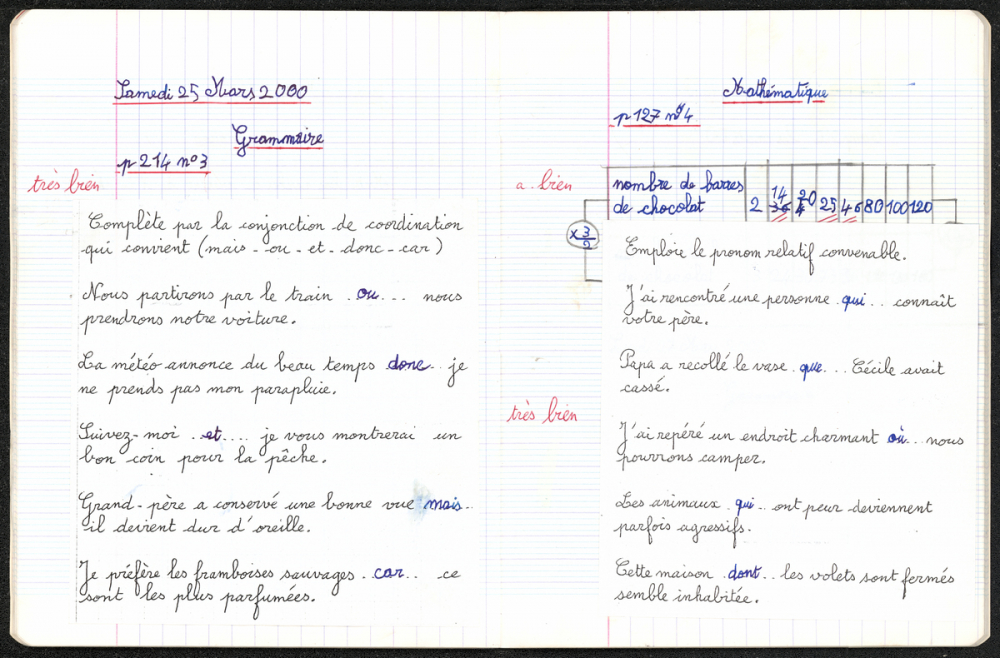 Samedi 25 Mars 2000
Grammaire
p 214 n°3
très bien
Complète par la conjonction de coordination
qui convient (mais - ou - et - donc - car)
Nous partirons par le train .ou... nous
prendrons notre voiture.
La météo annonce du beau temps donc.. je
ne prends pas mon parapluie.
Suivez-moi ..et.... je vous montrerai un
bon coin pour la pêche.
Grand-père a conservé une bonne vue mais..
il devient dur d'oreille.
Je préfère les framboises sauvages .car... ce
sont les plus parfumées.
Mathématique
p 127 n°4
a. bien
nombre de barres
de chocolat 2 14 20 25 46 80 100 120
x 3/2
Emploie le pronom relatif convenable.
J'ai rencontré une personne .qui.. connaît
votre père.
Papa a recollé le vase .que... Cécile avait
cassé.
très bien
J'ai repéré un endroit charmant où... nous
pourrons camper.
Les animaux .qui.. ont peur deviennent
parfois agressifs.
Cette maison .dont.. les volets sont fermés
semble inhabitée.